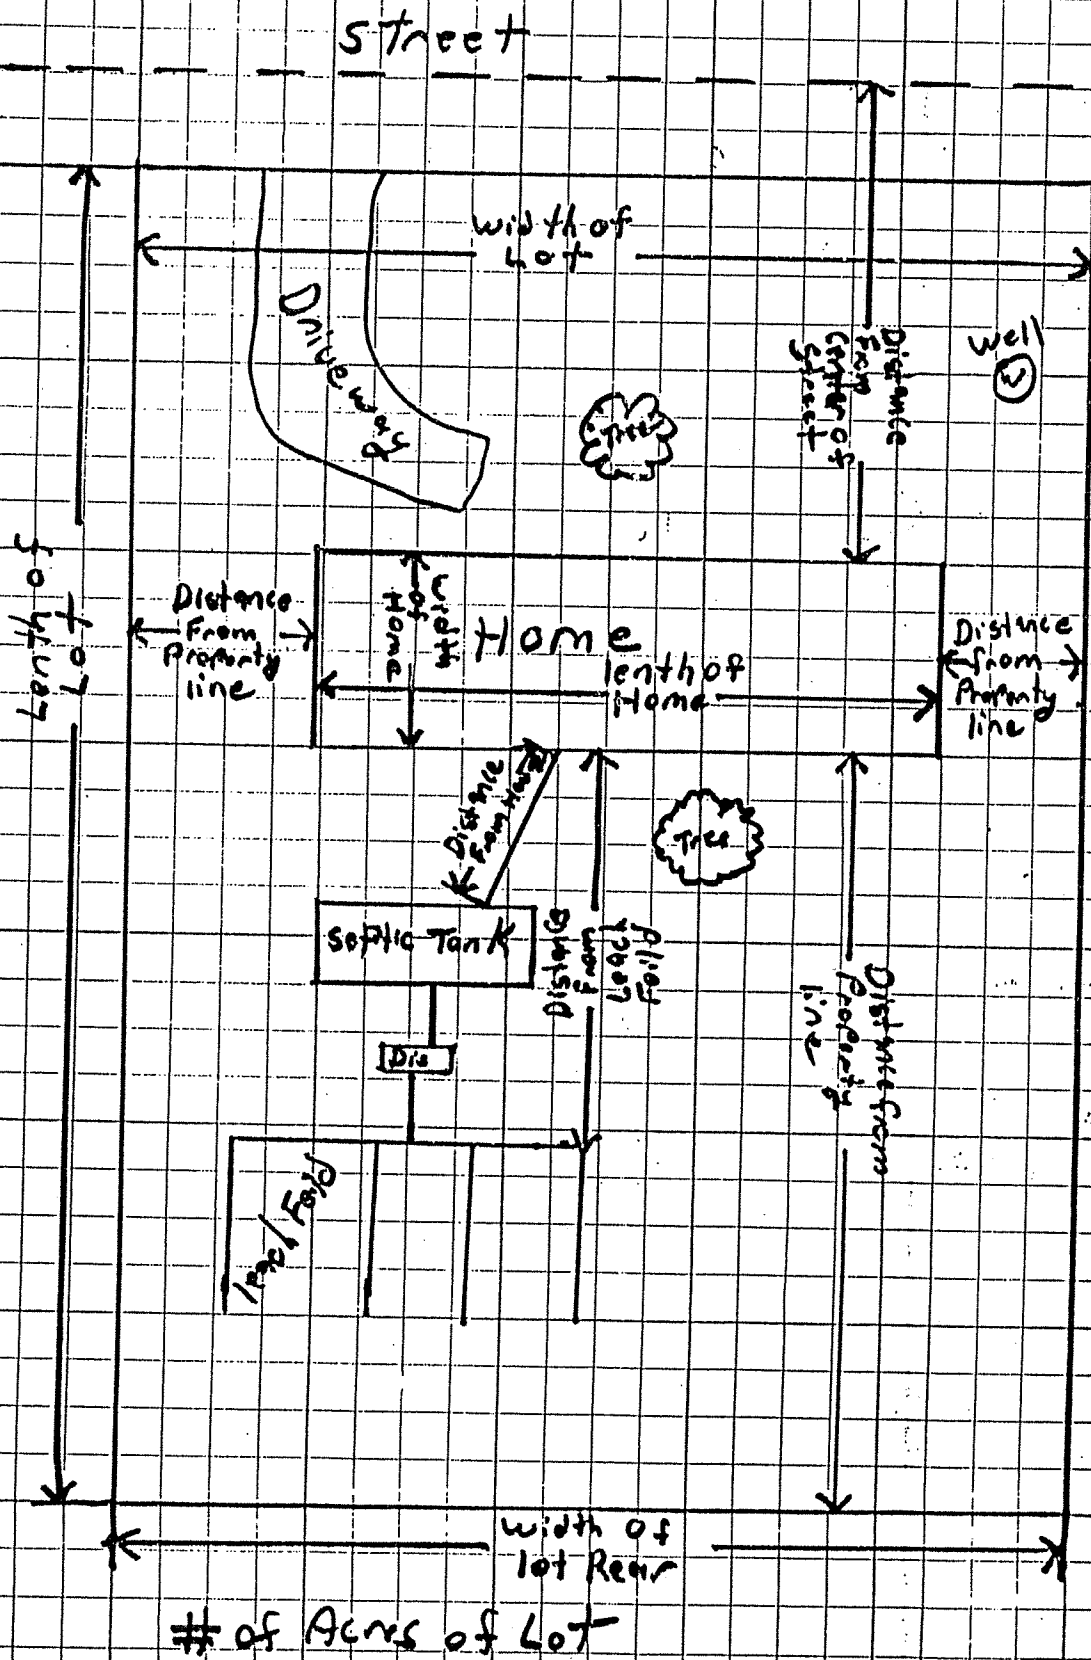 STreet
Width of
Lot
Driveway
Tree
Distance
From
Center of
Street
Well
W
Lenth of
Lot
Distance
From
Property
line
Width
of
Home
Home
lenth of
Home
Distance
from
Property
line
Distance
From House
Tree
Septic Tank
Distance
From
Leach
Feild
Distance from
Property
line
Dis
leach Faild
Width of
lot Rear
# of Acres of Lot